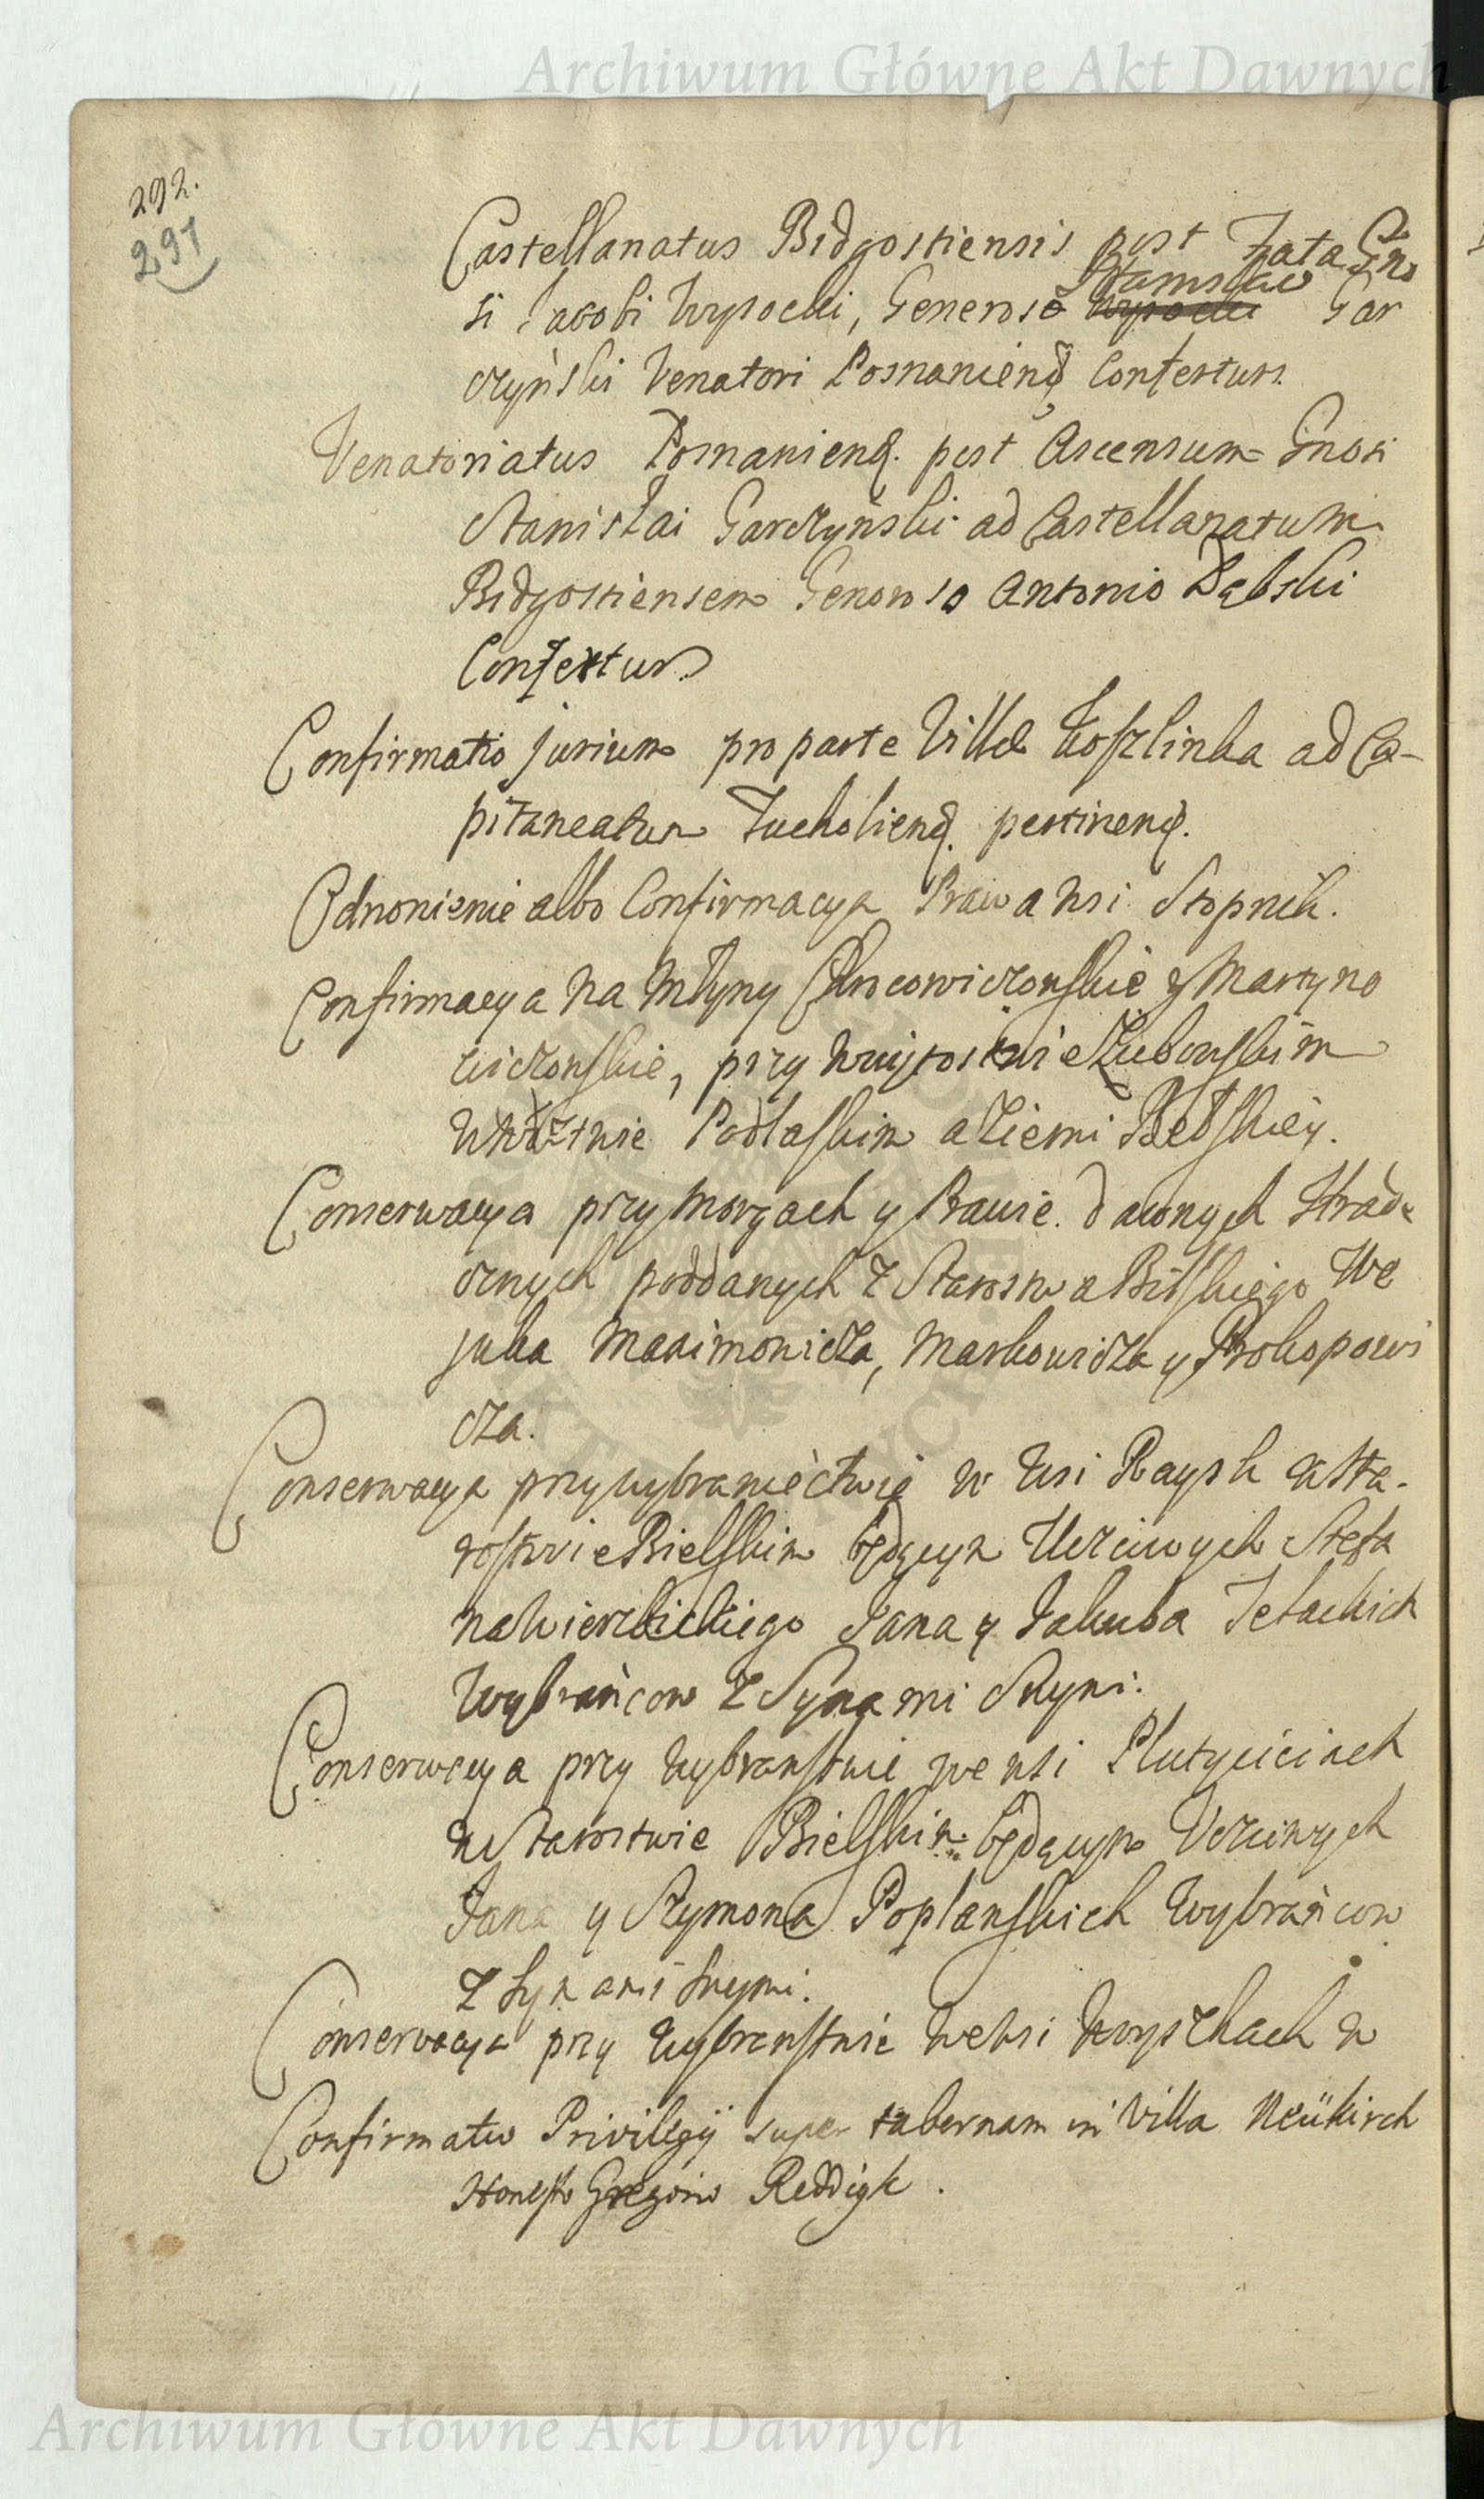 Archiwum Główne Akt Dawnych
292.
291
Castellanatus Bidgostiensis post Fata Gno
si Jacobi Wysocki, Generoso Stanislao Wysocki Gar
czyński Venatori Posnanienȩ Confertur.
Venatoriatus Posnanienȩ. post Ascensum Gnosi
Stanisłai Garczyński ad Castellanatum
Bidgostiensem Generoso Antonio Dąbski
Confertur.
Confirmatio jurium pro parte Villæ Koszlinka ad Ca-
pitaneatum Tucholienȩ. pertinenȩ.
Odnowienie albo Confirmacya Prawa wsi Stopnik.
Confirmacya na Młyny y Martyno
wiczowskie, przy
Podlaskim a Ziemi Bełskiey.
Conserwacya przy Morgach y Prawie dawnych Hrad-
ocnych poddanych z Starostwa Bilskiego We
juka Maximowicza, Markowicza y Prokopowi
cza.
Conserwacya przy wybraniectwie w wsi Raysk w Sta-
rostwie Bielskim będącym Uczciwych Stefa
na Wierzbickiego Jana y Jakuba
Wybrańcow z Synami Swymi.
Conserwacya przy wybranstwie we wsi Plutyciciach
w Starostwie Bielskim będącym Uczciwych
Jana y Szymona Poplanskich Wybrańcow
z Synami Swymi.
Conserwacya przy wybranstwie we wsi Knoryszkach w
Confirmatio Privilegÿ super tabernam in Villa Neükirch
Honesto Gregorio Reddigk.
Archiwum Główne Akt Dawnych